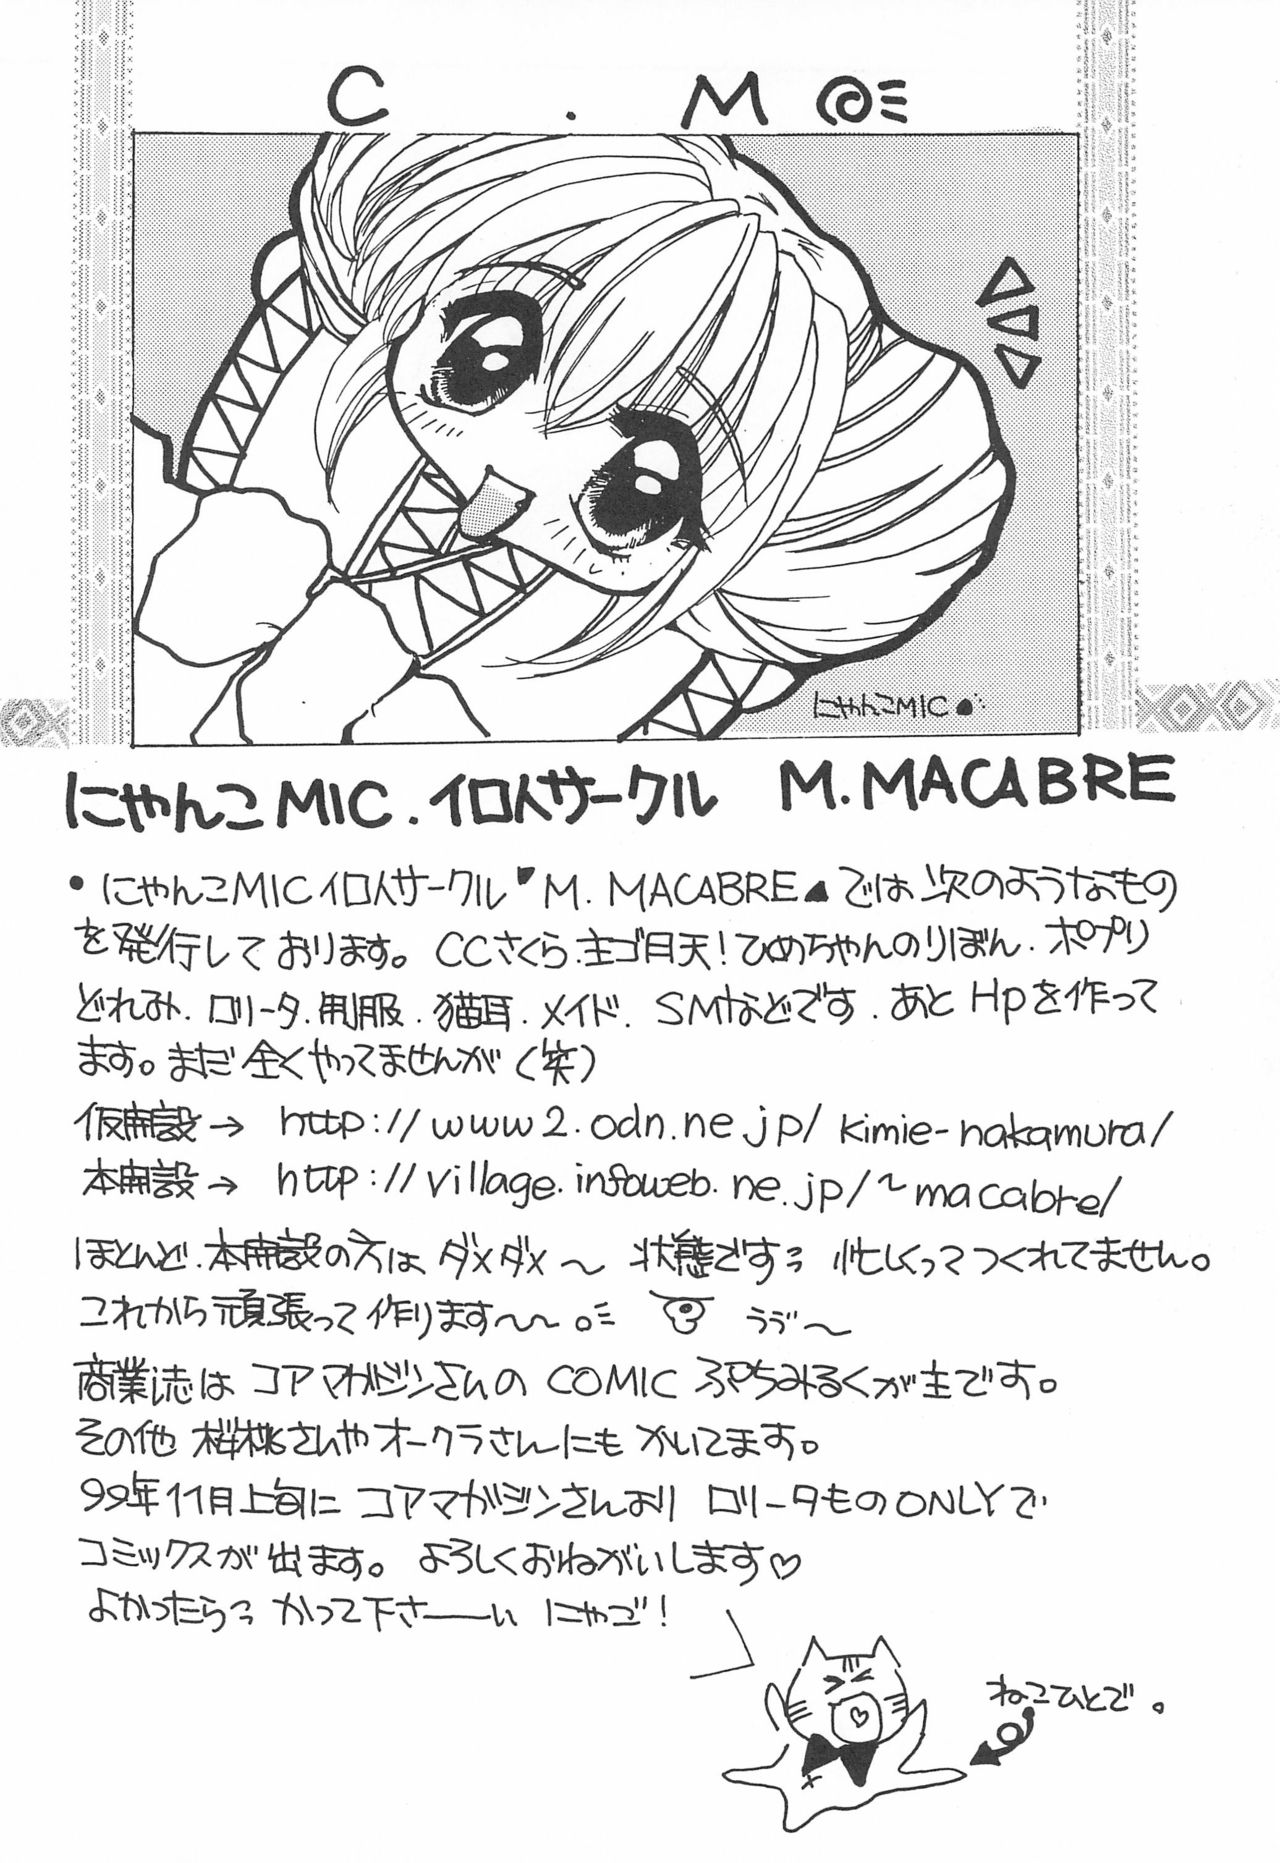 C . M
にゃんこMIC
にゃんこMIC.イロ人サークル M.MACABRE
• にゃんこMICイロ人サークル M. MACABRE では次のようなもの
を発行しております。CCさくら.主ゴ月天!ひめちゃんのりぼん.ポプリ
どれみ.ロリータ.制服.猫耳.メイド.SMなどです.あとHpを作って
ます。まだ全くやってませんが(笑)
仮開設→ http://www2.odn.ne.jp/kimie-nakamura/
本開設→ http://village.infoweb.ne.jp/~macabre/
ほとんど.本開設の方はダメダメ〜状態です 忙しくってつくれてません。
これから頑張って作ります〜〜 うづ〜
商業誌はコアマガジンさんのCOMICぷちみるくが主です。
その他 桜桃さんやオークラさんにもかいてます。
99年11月上旬にコアマガジンさんより ロリータものONLYで
コミックスが出ます。よろしくおねがいします♡
よかったらっ かって下さーーい にゃご!
ねこひとで。